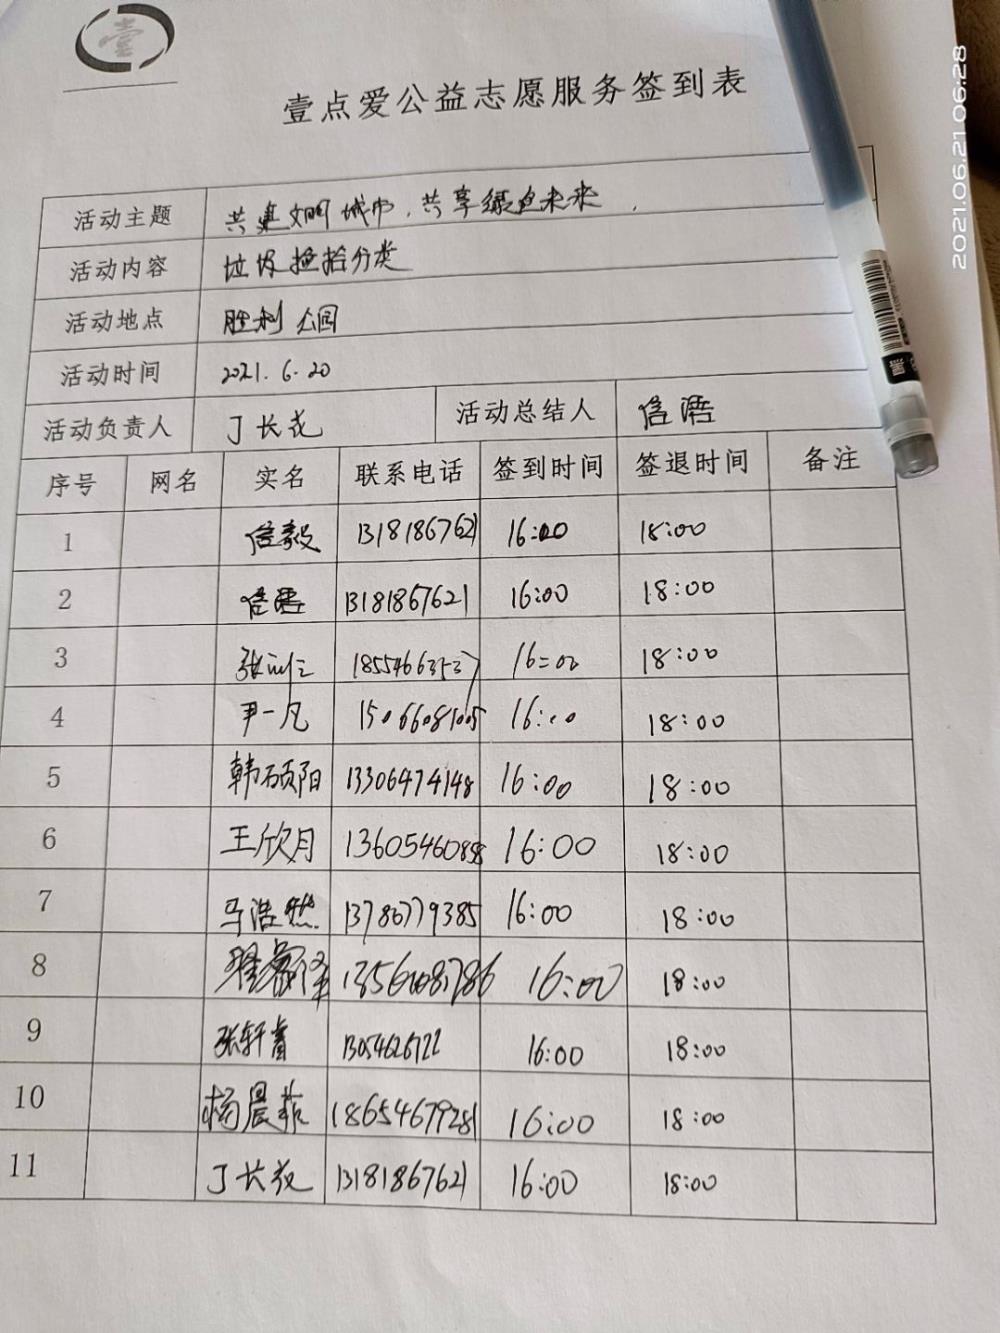 壹
壹点爱公益志愿服务签到表
2021.06.21 06:28
活动主题 共建文明城市，共享绿色未来
活动内容 垃圾捡拾分类
活动地点 胜利公园
活动时间 2021.6.20
活动负责人 丁长花 活动总结人 信语
序号 网名 实名 联系电话 签到时间 签退时间 备注
1 信毅 13181867621 16:00 18:00
2 信语 13181867621 16:00 18:00
3 16:00 18:00
4 尹一凡 15066081005 16:00 18:00
5 韩硕阳 13306474148 16:00 18:00
6 王欣月 16:00 18:00
7 马浩然 13780779385 16:00 18:00
8 16:00 18:00
9 张轩睿 16:00 18:00
10 杨晨菲 18654679281 16:00 18:00
11 丁长花 13181867621 16:00 18:00